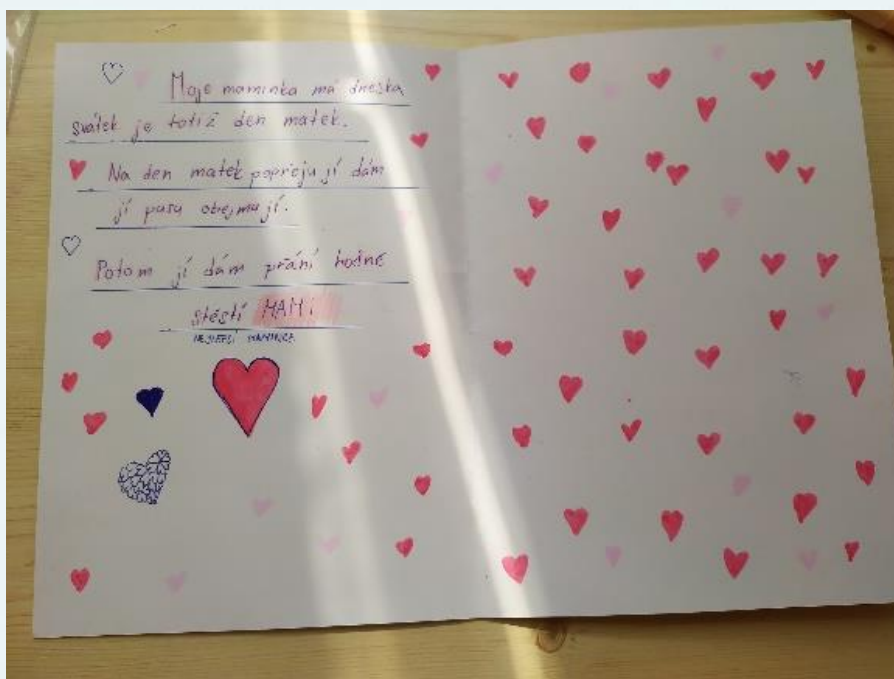 Moje maminka má dneska
svátek je totiž den matek.
Na den matek popřeju jí dám
jí pusu obejmu jí.
Potom jí dám přání hodně
štěstí MAMI
NEJLEPŠÍ MAMINCE